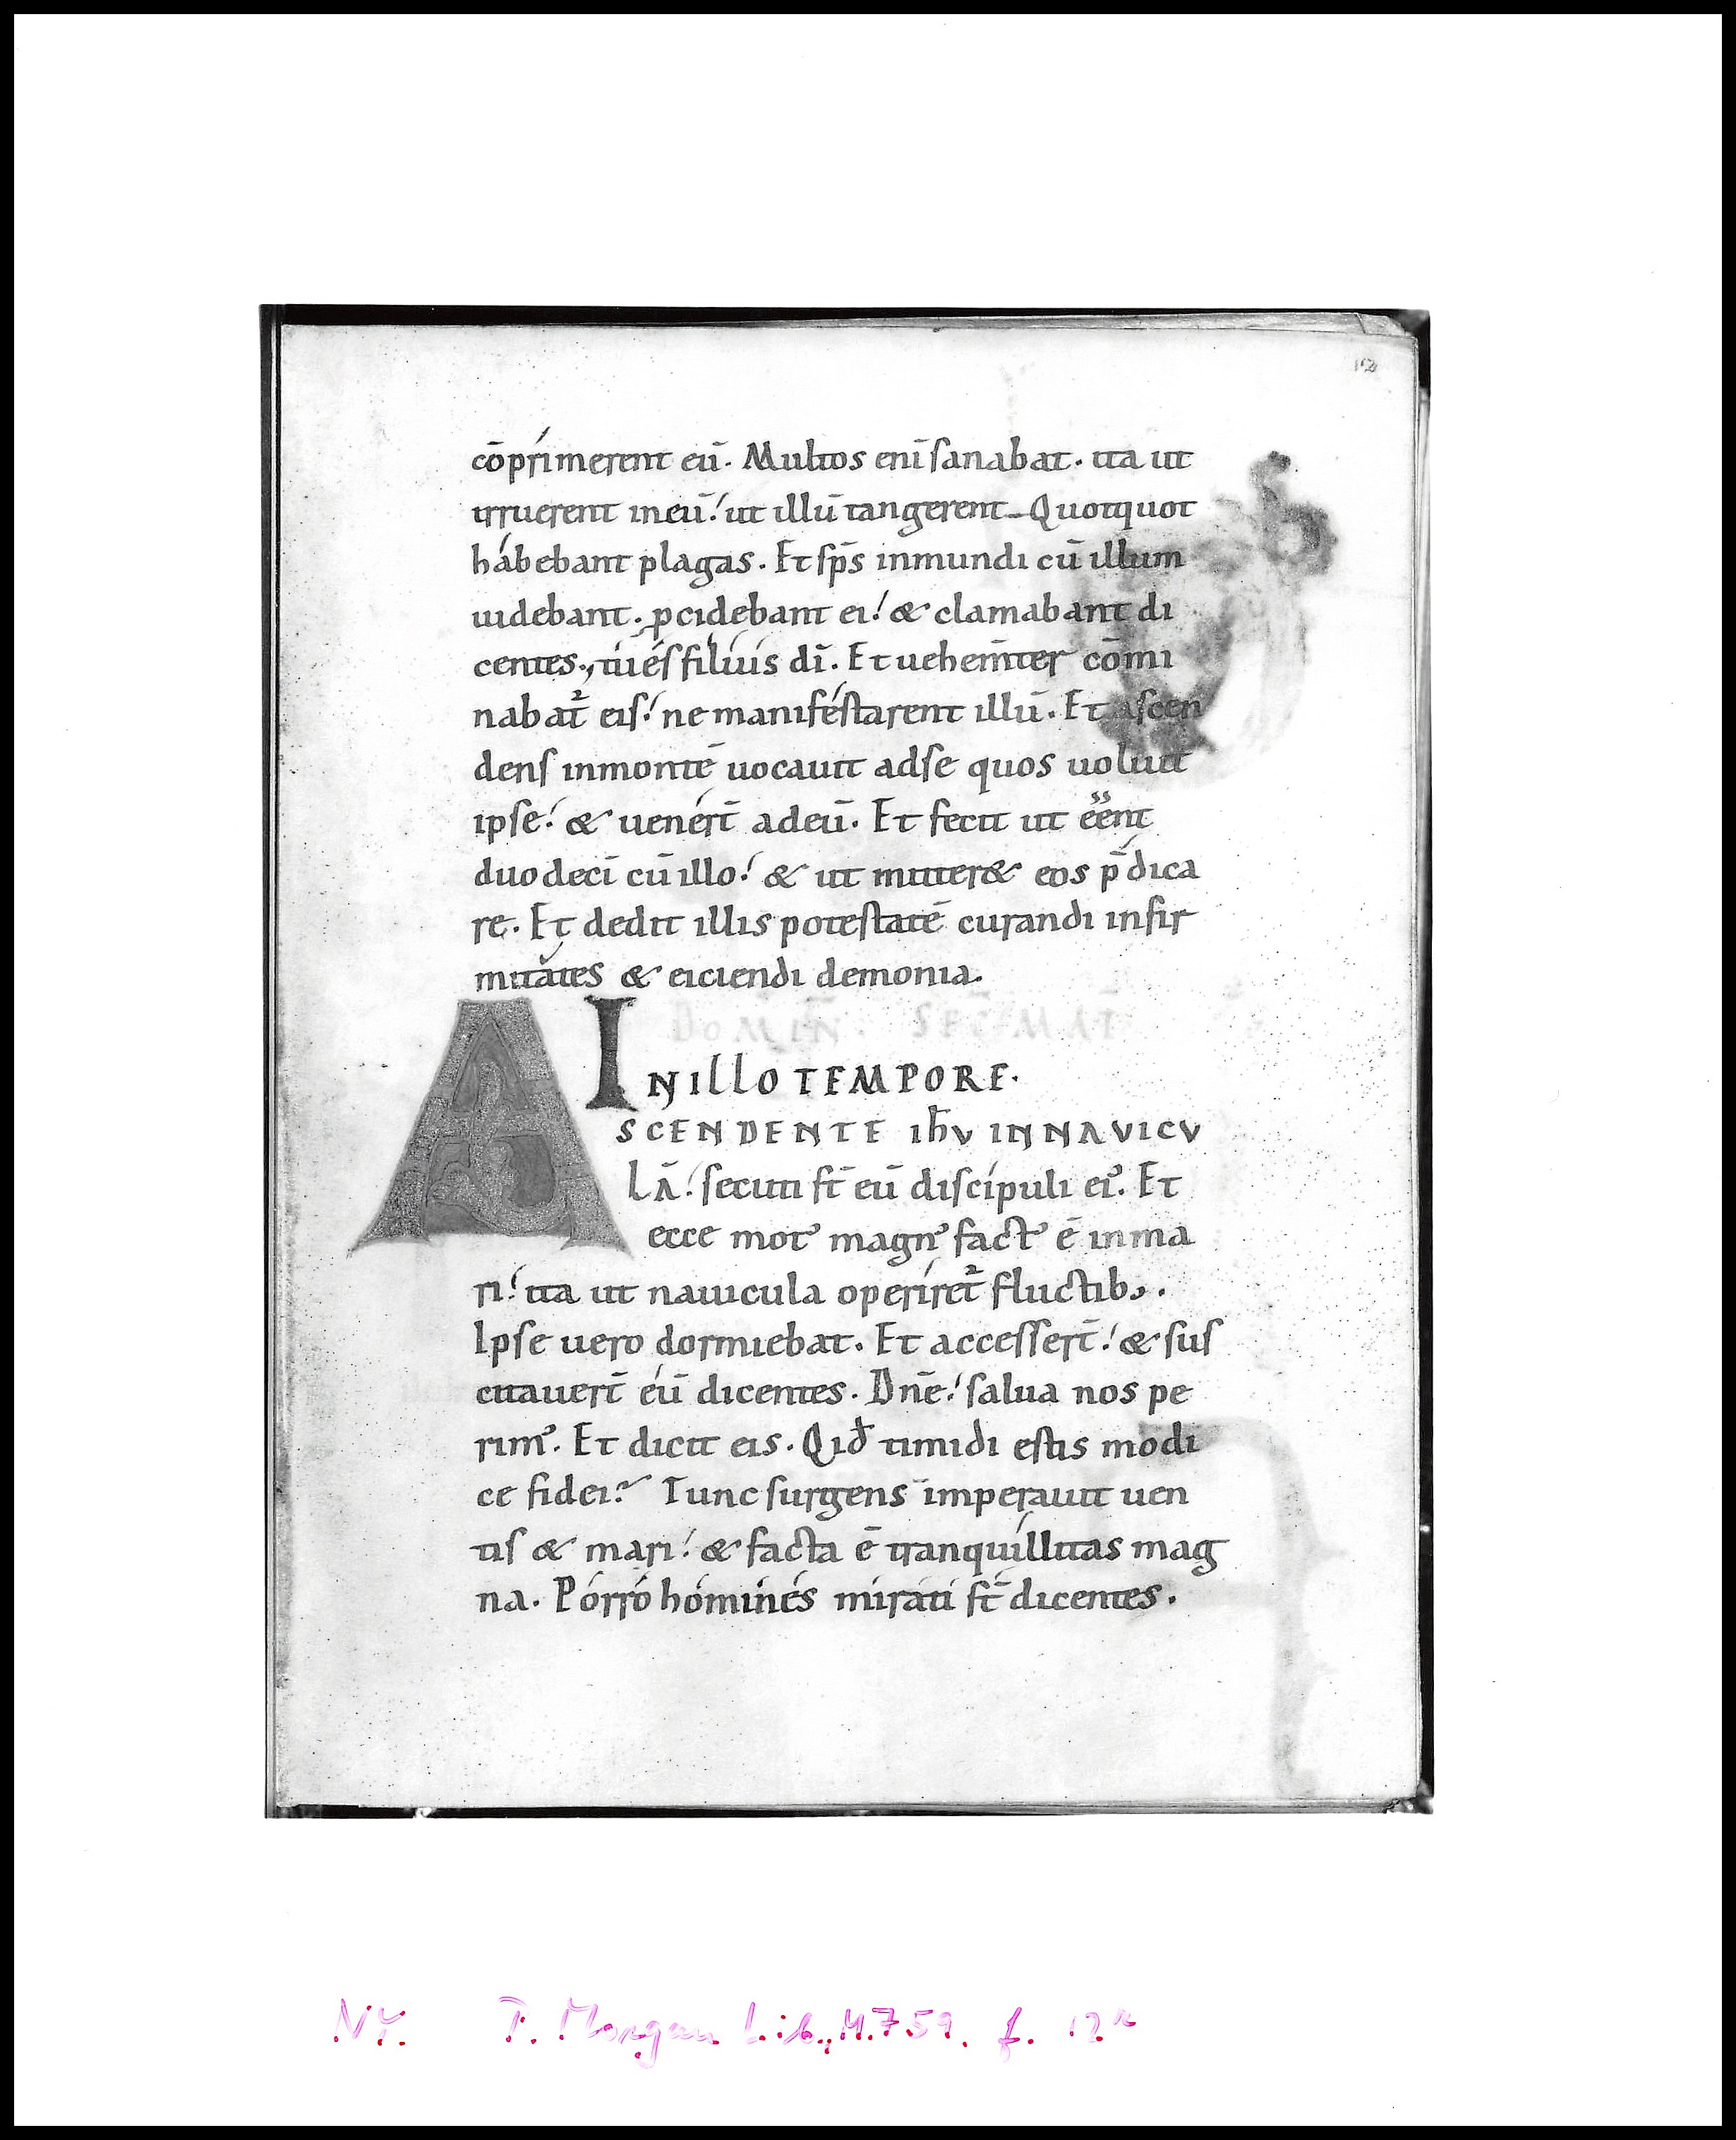 12
cōprimerent eū. Multos enī sanabat. ita ut
irruerent ineū! ut illū tangerent. Quotquot
habebant plagas. Et sp̄s inmundi cū illum
uidebant. pcidebant ei! & clamabant di
centes., tú és filius dī. Et uehem̄ter cōmi
nabat̄ eis! ne maniféstarent illū. Et ascen
dens inmontē uocauit adse quos uoluit
ipse! & uenért̄ adeū. Et fecit ut ēēnt
duodecī cū illo! & ut mitter& eos p̄dica
re. Et dedit illis potestatē curandi infir
mitates & eiciendi demonia.
DOMIN̄. SEC̄ MAT̄
IN ILLO TEMPORE.
ASCENDENTE ih̄v IN NAVICV
LĀ! secuti st̄ eū discipuli eiꝰ. Et
ecce motꝰ magnꝰ factꝰ ē inma
ri! ita ut nauicula operíret̄ fluctib;.
Ipse uero dormiebat. Et accessert̄! & sus
citauert̄ eū dicentes. Dn̄e! salua nos pe
rimꝰ. Et dicit eis. Qid̄ timidi estis modi
ce fidei? Tunc surgens imperauit uen
tis & mari! & facta ē tranquíllitas mag
na. Pórró hóminés miráti st̄ dicentes.
NY. P. Morgan Lib., M.759. f. 12r